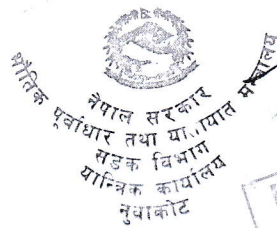 नेपाल सरकार
भौतिक पूर्वाधार तथा यातायात मन्त्रालय
सडक विभाग
यान्त्रिक कार्यालय
नुवाकोट